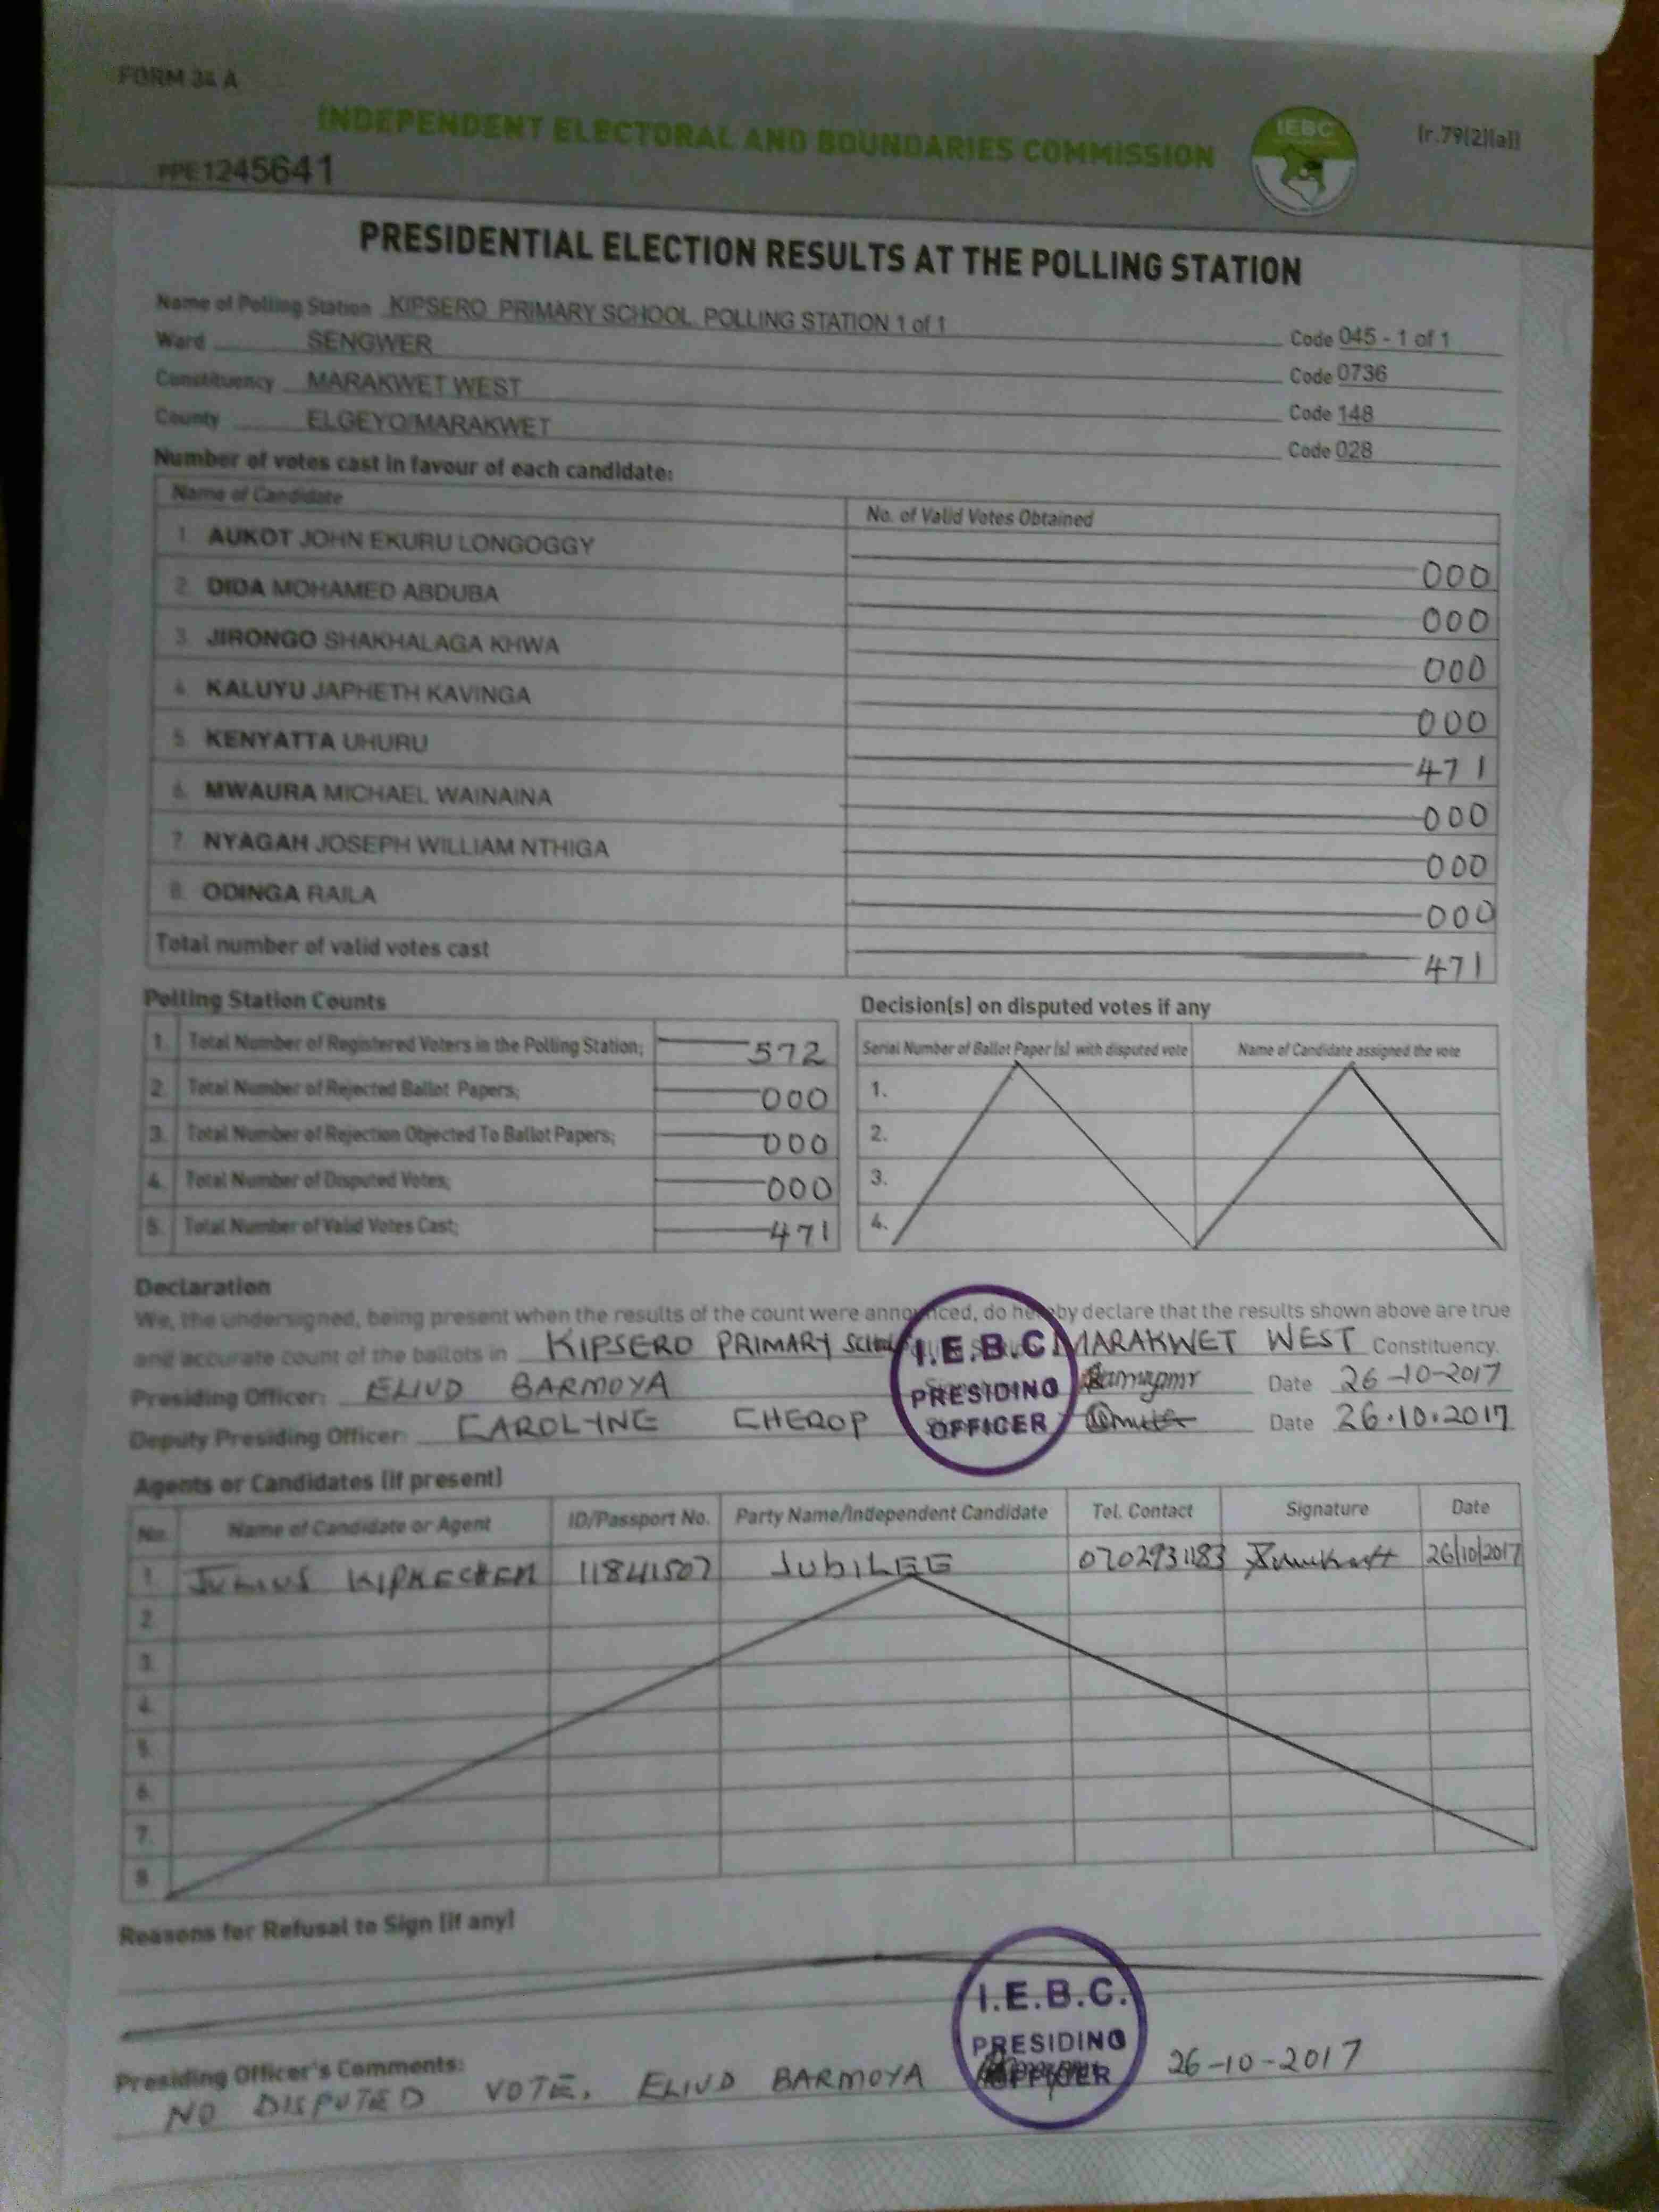 FORM 34 A
INDEPENDENT ELECTORAL AND BOUNDARIES COMMISSION
IEBC
(r.79(2)(a))
PPE1245641
PRESIDENTIAL ELECTION RESULTS AT THE POLLING STATION
Name of Polling Station KIPSERO PRIMARY SCHOOL POLLING STATION 1 of 1 Code 045 - 1 of 1
Ward SENGWER Code 0736
Constituency MARAKWET WEST Code 148
County ELGEYO/MARAKWET Code 028
Number of votes cast in favour of each candidate:
Name of Candidate No. of Valid Votes Obtained
1. AUKOT JOHN EKURU LONGOGGY 000
2. DIDA MOHAMED ABDUBA 000
3. JIRONGO SHAKHALAGA KHWA 000
4. KALUYU JAPHETH KAVINGA 000
5. KENYATTA UHURU 471
6. MWAURA MICHAEL WAINAINA 000
7. NYAGAH JOSEPH WILLIAM NTHIGA 000
8. ODINGA RAILA 000
Total number of valid votes cast 471
Polling Station Counts
1. Total Number of Registered Voters in the Polling Station; 572
2. Total Number of Rejected Ballot Papers; 000
3. Total Number of Rejection Objected To Ballot Papers; 000
4. Total Number of Disputed Votes; 000
5. Total Number of Valid Votes Cast; 471
Decision(s) on disputed votes if any
Serial Number of Ballot Paper (s) with disputed vote Name of Candidate assigned the vote
1.
2.
3.
4.
Declaration
We, the undersigned, being present when the results of the count were announced, do hereby declare that the results shown above are true
and accurate count of the ballots in KIPSERO PRIMARY MARAKWET WEST Constituency.
Presiding Officer: ELIUD BARMOYA Date 26-10-2017
Deputy Presiding Officer: CAROLYNE CHEROP Date 26.10.2017
I.E.B.C
PRESIDING
OFFICER
Agents or Candidates (if present)
No. Name of Candidate or Agent ID/Passport No. Party Name/Independent Candidate Tel. Contact Signature Date
1 11841507 JUBILEE 0702931183 26/10/2017
2
3.
4.
5.
6.
7.
8
Reasons for Refusal to Sign (if any)
I.E.B.C.
PRESIDING
OFFICER
Presiding Officer's Comments:
NO DISPUTED VOTE. ELIUD BARMOYA 26-10-2017